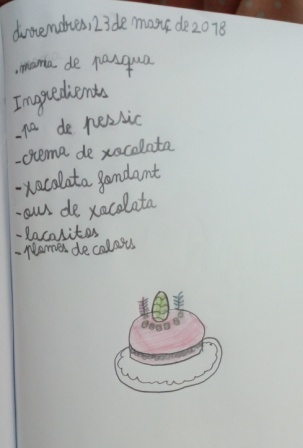 divendres, 23 de març de 2018
.mona de pasqua
Ingredients
-pa de pessic
-crema de xocolata
-xocolata fondant
-ous de xocolata
-lacasitos
-plomes de colors